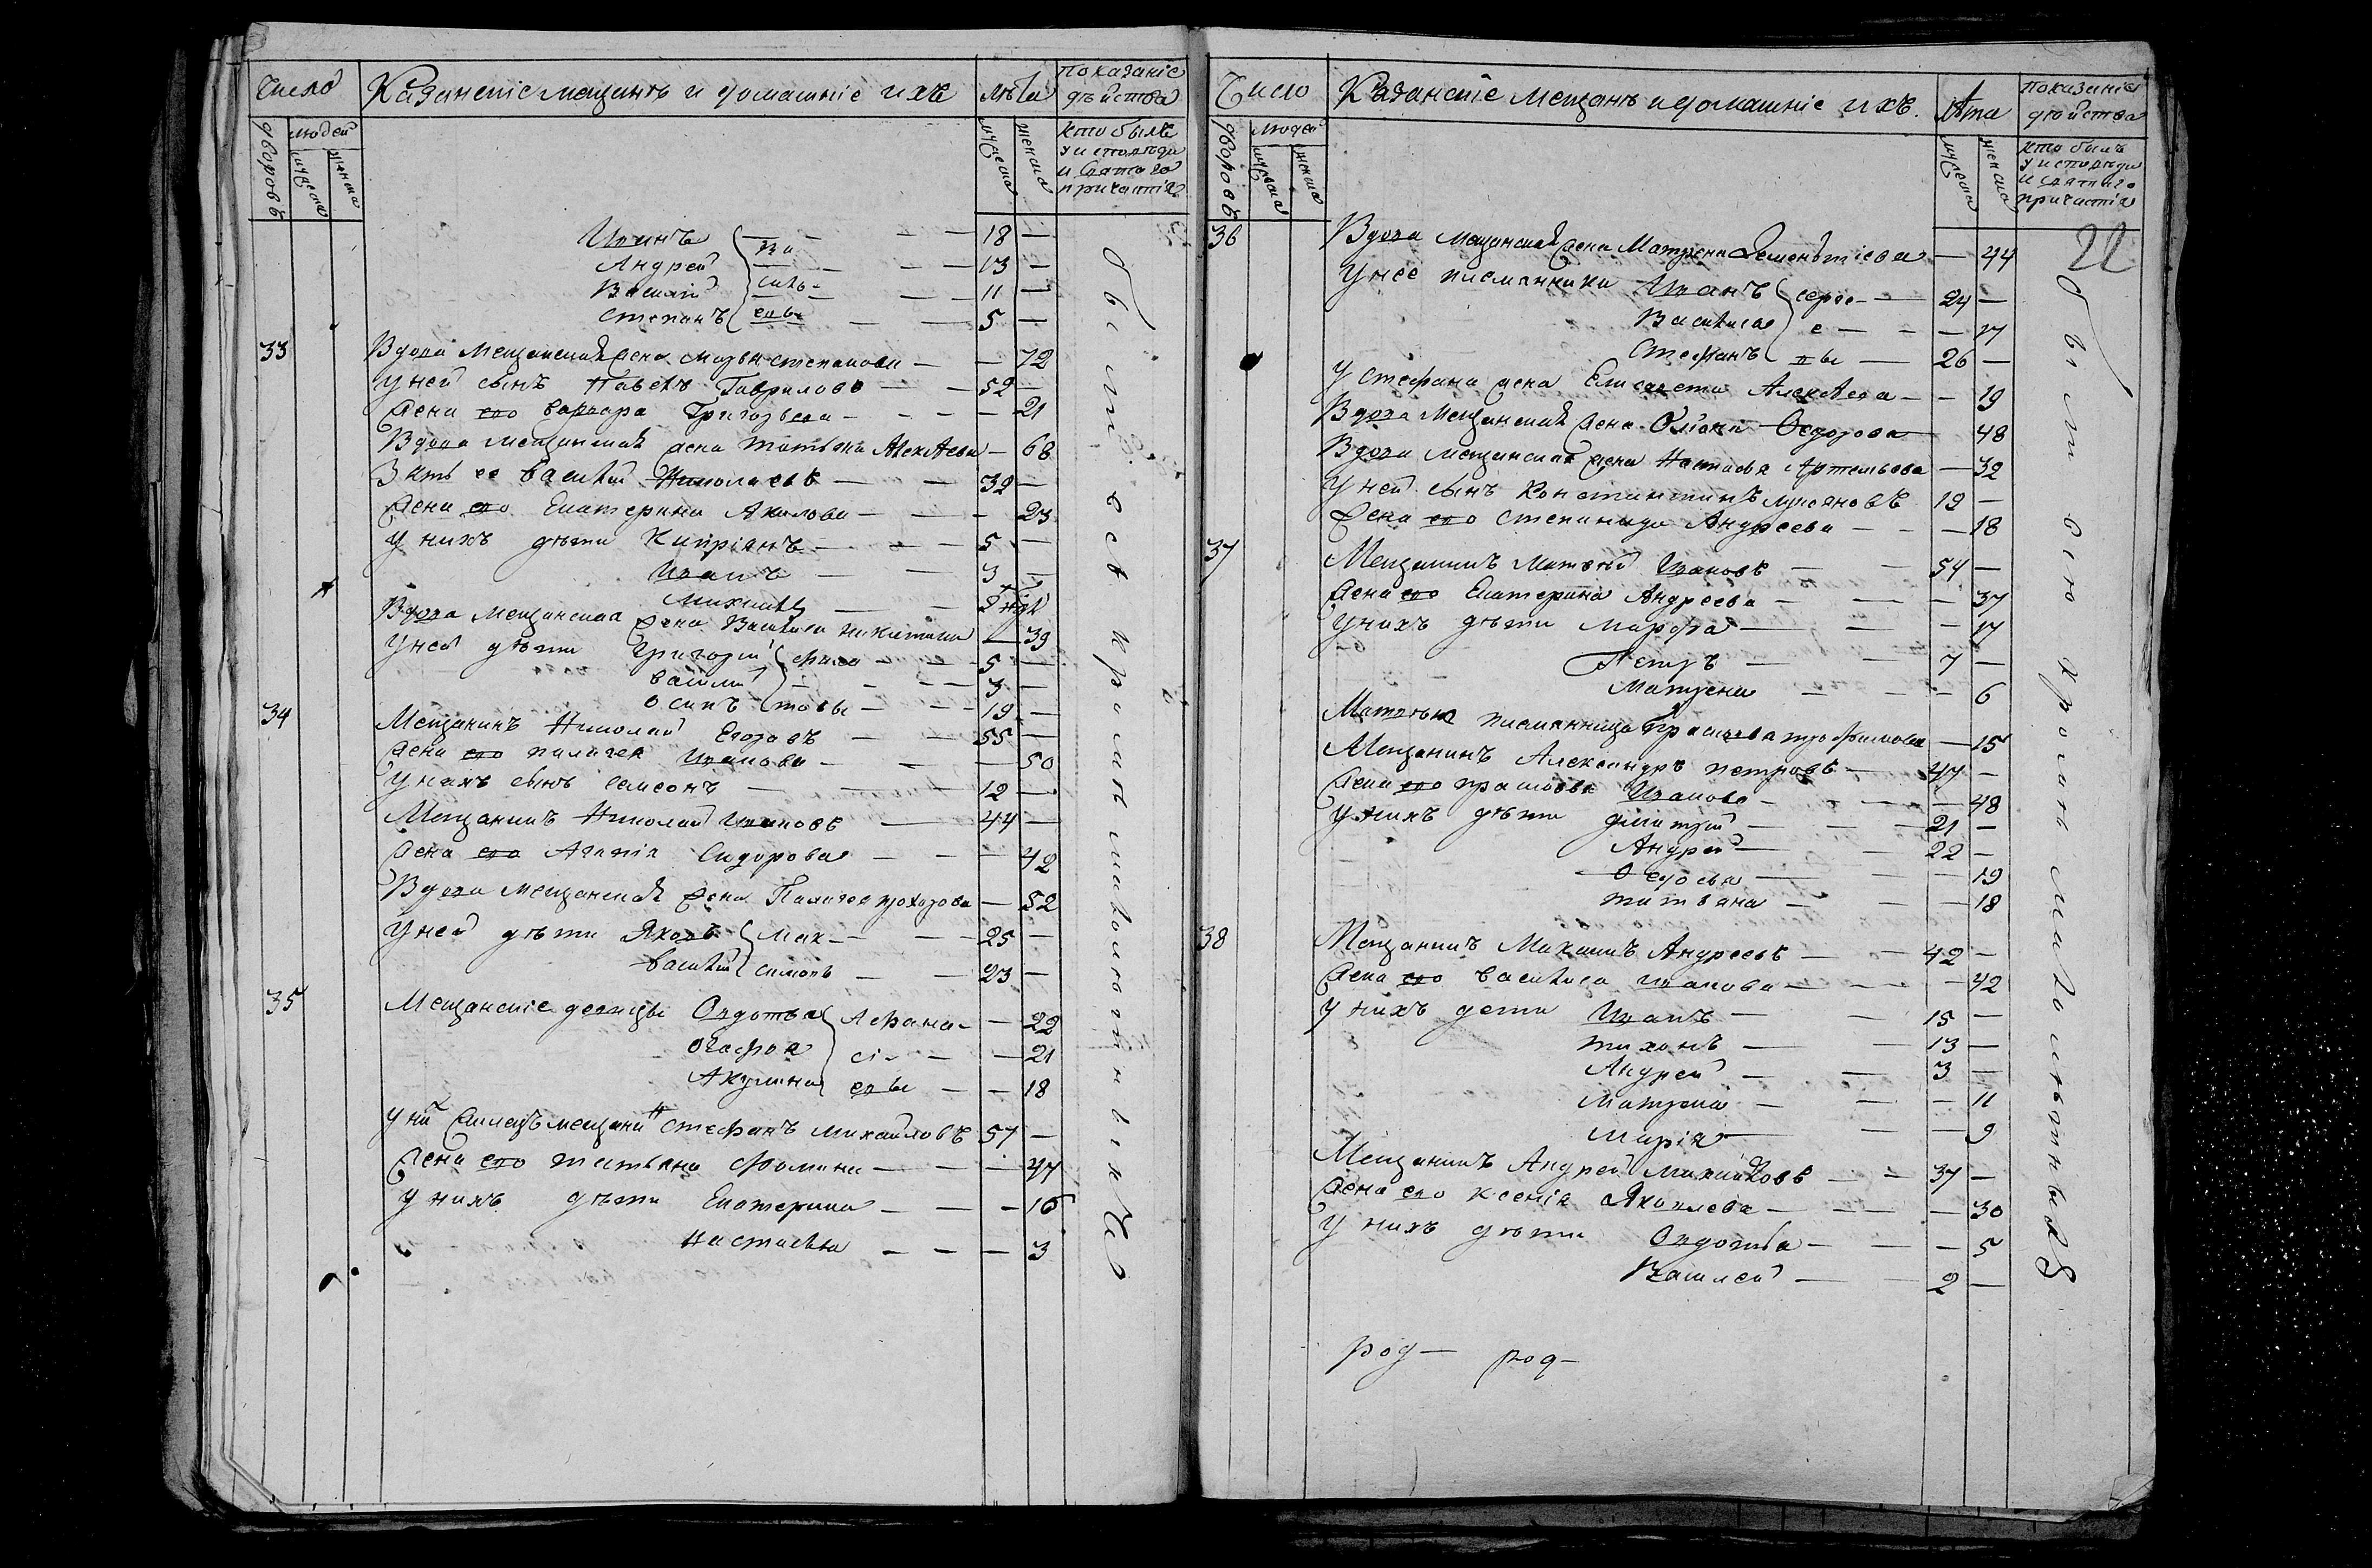 Число Казанскіе мещанъ и домашніе ихъ Лѣта Показаніе дѣйства
дворовъ людей мужеска женска мужеска женска кто былъ у исповѣди и Святаго причастія
Иванъ — 18 —
Андрей — 13 —
Василій — 11 —
Степанъ евы — 5 —
33 Вдова мещанская жена Марья Степанова — — 72
У ней сынъ Павелъ Гавриловъ — 52 —
Жена его Варвара Григорьева — — 21
Вдова мещанская жена Татьяна Алексѣева — 68
Зять ее Василій Николаевъ — 32 —
Жена его Екатерина Акилова — — 23
У нихъ дѣти Кипріянъ — 5 —
Иванъ — 3 —
Михаилъ —
Вдова мещанская жена Василиса Никитина — 39
У ней дѣти Григорій — 5 —
Василій — 3 —
Осипъ товы — 19 —
34 Мещанинъ Николай Егоровъ — 55 —
Жена его Палагея Иванова — — 50
У нихъ сынъ Самсонъ — 12 —
Мещанинъ Николай Ивановъ — 44 —
Жена его Агапія Сидорова — — 42
Вдова мещанская жена Палагея Прохорова — 52
У ней дѣти Яковъ Мак — 25 —
Василій симовы — 23 —
35 Мещанскіе девицы Овдотья Афана — — 22
Огафья сі — — 21
Акулина евы — — 18
У них жилецъ мещанин Стефанъ Михайловъ 57 —
Жена его Татьяна Фомина — — 47
У нихъ дѣти Екатерина — — 16
Настасья — — 3
всѣ крома малолѣтныхъ
Число Казанскіе мещанъ и домашніе ихъ. Лѣта показаніе дѣйства
дворовъ людей мужеска женска мужеска женска кто былъ у исповѣди и святаго причастія
22
36 Вдова мещанская жена Матрена Дементіева — 44
У нее племянники Иванъ серге — 24 —
Василиса е — — 17
Стефанъ вы — 26 —
У Стефана жена Елисавета Алексѣева — — 19
Вдова мещанская жена Ѳедорова 48
Вдова мещанская жена Настасья Артемьева — 32
У ней сынъ Константинъ Лукояновъ 19 —
Жена его Степанида Андреева — — 18
37 Мещанинъ Матвѣй Ивановъ — 54 —
Жена его Екатерина Андреева — — 37
У нихъ дѣти Марфа — — 17
Петръ — 7 —
Матрена — — 6
Матвѣя племянница Прасковья Трофимова — 15
Мещанинъ Александръ Петровъ — 47 —
Жена его Прасковья Иванова — — 48
У нихъ дѣти Дмитрій — 21 —
Андрей — 22 —
Ѳедосья — — 19
Татьяна — — 18
38 Мещанинъ Михаилъ Андреевъ — 42 —
Жена его Василиса Иванова — — 42
У нихъ дети Иванъ — 15 —
Тихонъ — 13 —
Андрей — 3 —
Матрена — — 11
Марія — — 9
Мещанинъ Андрей Михайловъ — 37 —
Жена его Ксенія Яковлева — — 30
У нихъ дѣти Овдотья — — 5
Василей — 2 —
род — род —
крома малолѣтныхъ